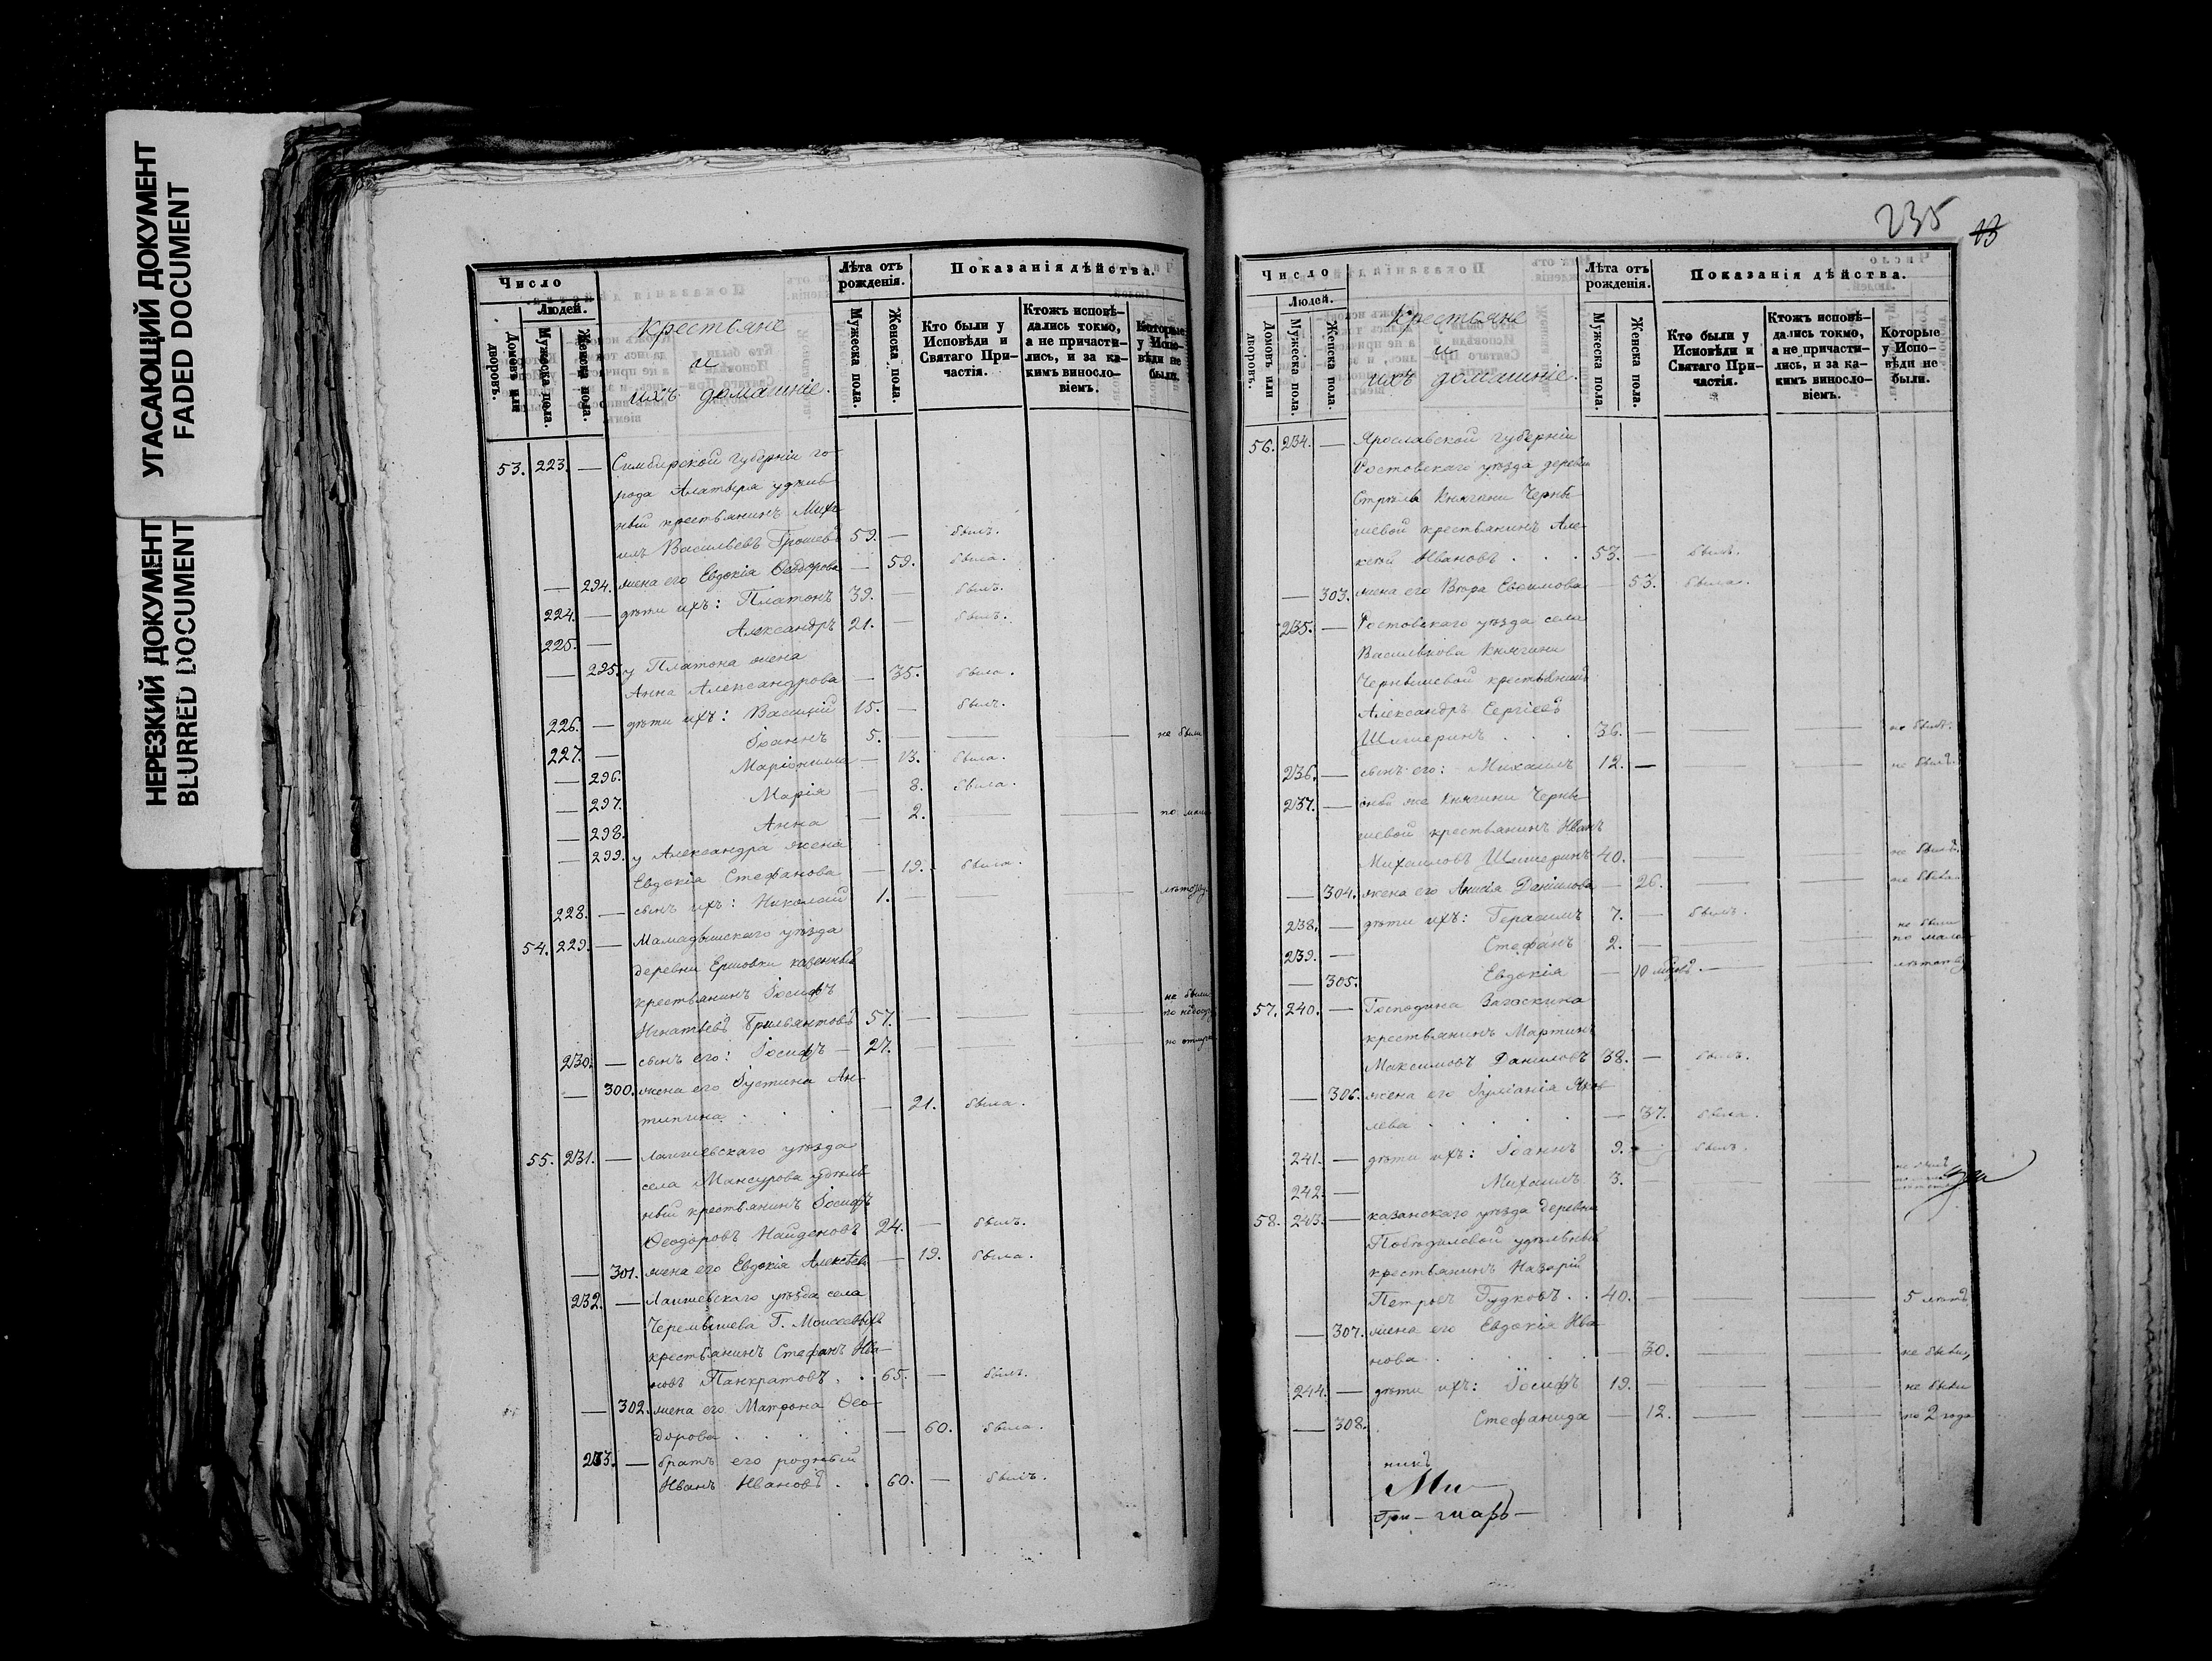 УГАСАЮЩИЙ ДОКУМЕНТ
FADED DOCUMENT
НЕРЕЗКИЙ ДОКУМЕНТ
BLURRED DOCUMENT
Число
Людей.
Домовъ или дворовъ.
Мужеска пола.
Женска пола.
Крестьяне
и
ихъ домашніе.
Лѣта отъ рожденія.
Мужеска пола.
Женска пола.
Показанія дѣйства.
Кто были у Исповѣди и Святаго Причастія.
Ктожъ исповѣдались токмо, а не причастились, и за какимъ винословіемъ.
Которые у Исповѣди не были.
53. 223. — Симбирской губерніи го-
рода Алатыря удѣль-
ный крестьянинъ Миха-
илъ Васильевъ 59. — былъ.
— 294. жена его Евдокія Ѳеодорова — 59. была.
224. — дѣти ихъ: Платонъ 39. — былъ.
225. — Александръ 21. — былъ.
— 295. у Платона жена
Анна Александрова — 35. была.
226. — дѣти ихъ: Василій 15. — былъ.
227. — Іоаннъ 5. — — — не были
— 296. — 13. была.
— 297. Марія — 8. была.
— 298. Анна — 2. — — по мал
— 299. у Александра жена
Евдокія Стефанова — 19. была.
228. — сынъ ихъ: Николай 1. — — —
54. 229. — Мамадышскаго уѣзда
деревни Ершовки казенный
крестьянинъ Іосифъ
Игнатьевъ Брильянтовъ 57. — — — не были
230. — сынъ его: Іосифъ — 27. — — —
— 300. жена его Іустина Ан-
типина — 21. была.
55. 231. — Лаишевскаго уѣзда
села Мансурова удѣль-
ный крестьянинъ Іосифъ
Ѳеодоровъ Найденовъ 24. — былъ.
— 301. жена его Евдокія Алексѣева — 19. была.
232. — Лаишевскаго уѣзда села
Черемышева Г. Моисеевыхъ
крестьянинъ Стефанъ Ива-
новъ Панкратовъ. 65. — былъ.
— 302. жена его Матрона Ѳео-
дорова — 60. была.
233. — братъ его родный
Иванъ Ивановъ. 60. — былъ.
235
13
Число
Людей.
Домовъ или дворовъ.
Мужеска пола.
Женска пола.
Крестьяне
и
ихъ домашніе.
Лѣта отъ рожденія.
Мужеска пола.
Женска пола.
Показанія дѣйства.
Кто были у Исповѣди и Святаго Причастія.
Ктожъ исповѣдались токмо, а не причастились, и за какимъ винословіемъ.
Которые у Исповѣди не были.
56. 234. — Ярославской губерніи
Ростовскаго уѣзда деревни
Княгини Черны-
шевой крестьянинъ Але-
ксѣй Ивановъ . . . 53. — былъ.
— 303. жена его Вѣра Евѳимова — 53. была.
235. — Ростовскаго уѣзда села
Василькова Княгини
Чернышевой крестьянинъ
Александръ Сергіевъ
Шишеринъ . . . 36. — — — не былъ.
236. — сынъ его: Михаилъ 12. — не былъ.
237. — оной же Княгини Черны-
шевой крестьянинъ Иванъ
Михаиловъ Шишеринъ 40. — — — не былъ.
— 304. жена его Анисія Даніилова — 26. — — не была.
238. — дѣти ихъ: Герасимъ 7. — былъ.
239. — Стефанъ 2. — — не были по мало-
— 305. Евдокія — 10 — — лѣтству
57. 240. — Господина
крестьянинъ Мартинъ
Максимовъ Даниловъ 38. — былъ.
— 306. жена его Іуліанія Яков-
лева . . . . — 37. была.
241. — дѣти ихъ: Іоаннъ 9. — былъ.
242. — Михаилъ 3. — — —
58. 243. — Казанскаго уѣзда деревни
Побѣдиловой удѣльный
крестьянинъ Назарій
Петровъ Гудковъ . . 40. — — — 5 лѣтъ
— 307. жена его Евдокія Ива-
нова . . . — 30. — — не были,
244. — дѣти ихъ: Іосифъ 19. — — — не были
— 308. Стефанида — 12. — — по 2 года
никъ
Ми—
Гри— —